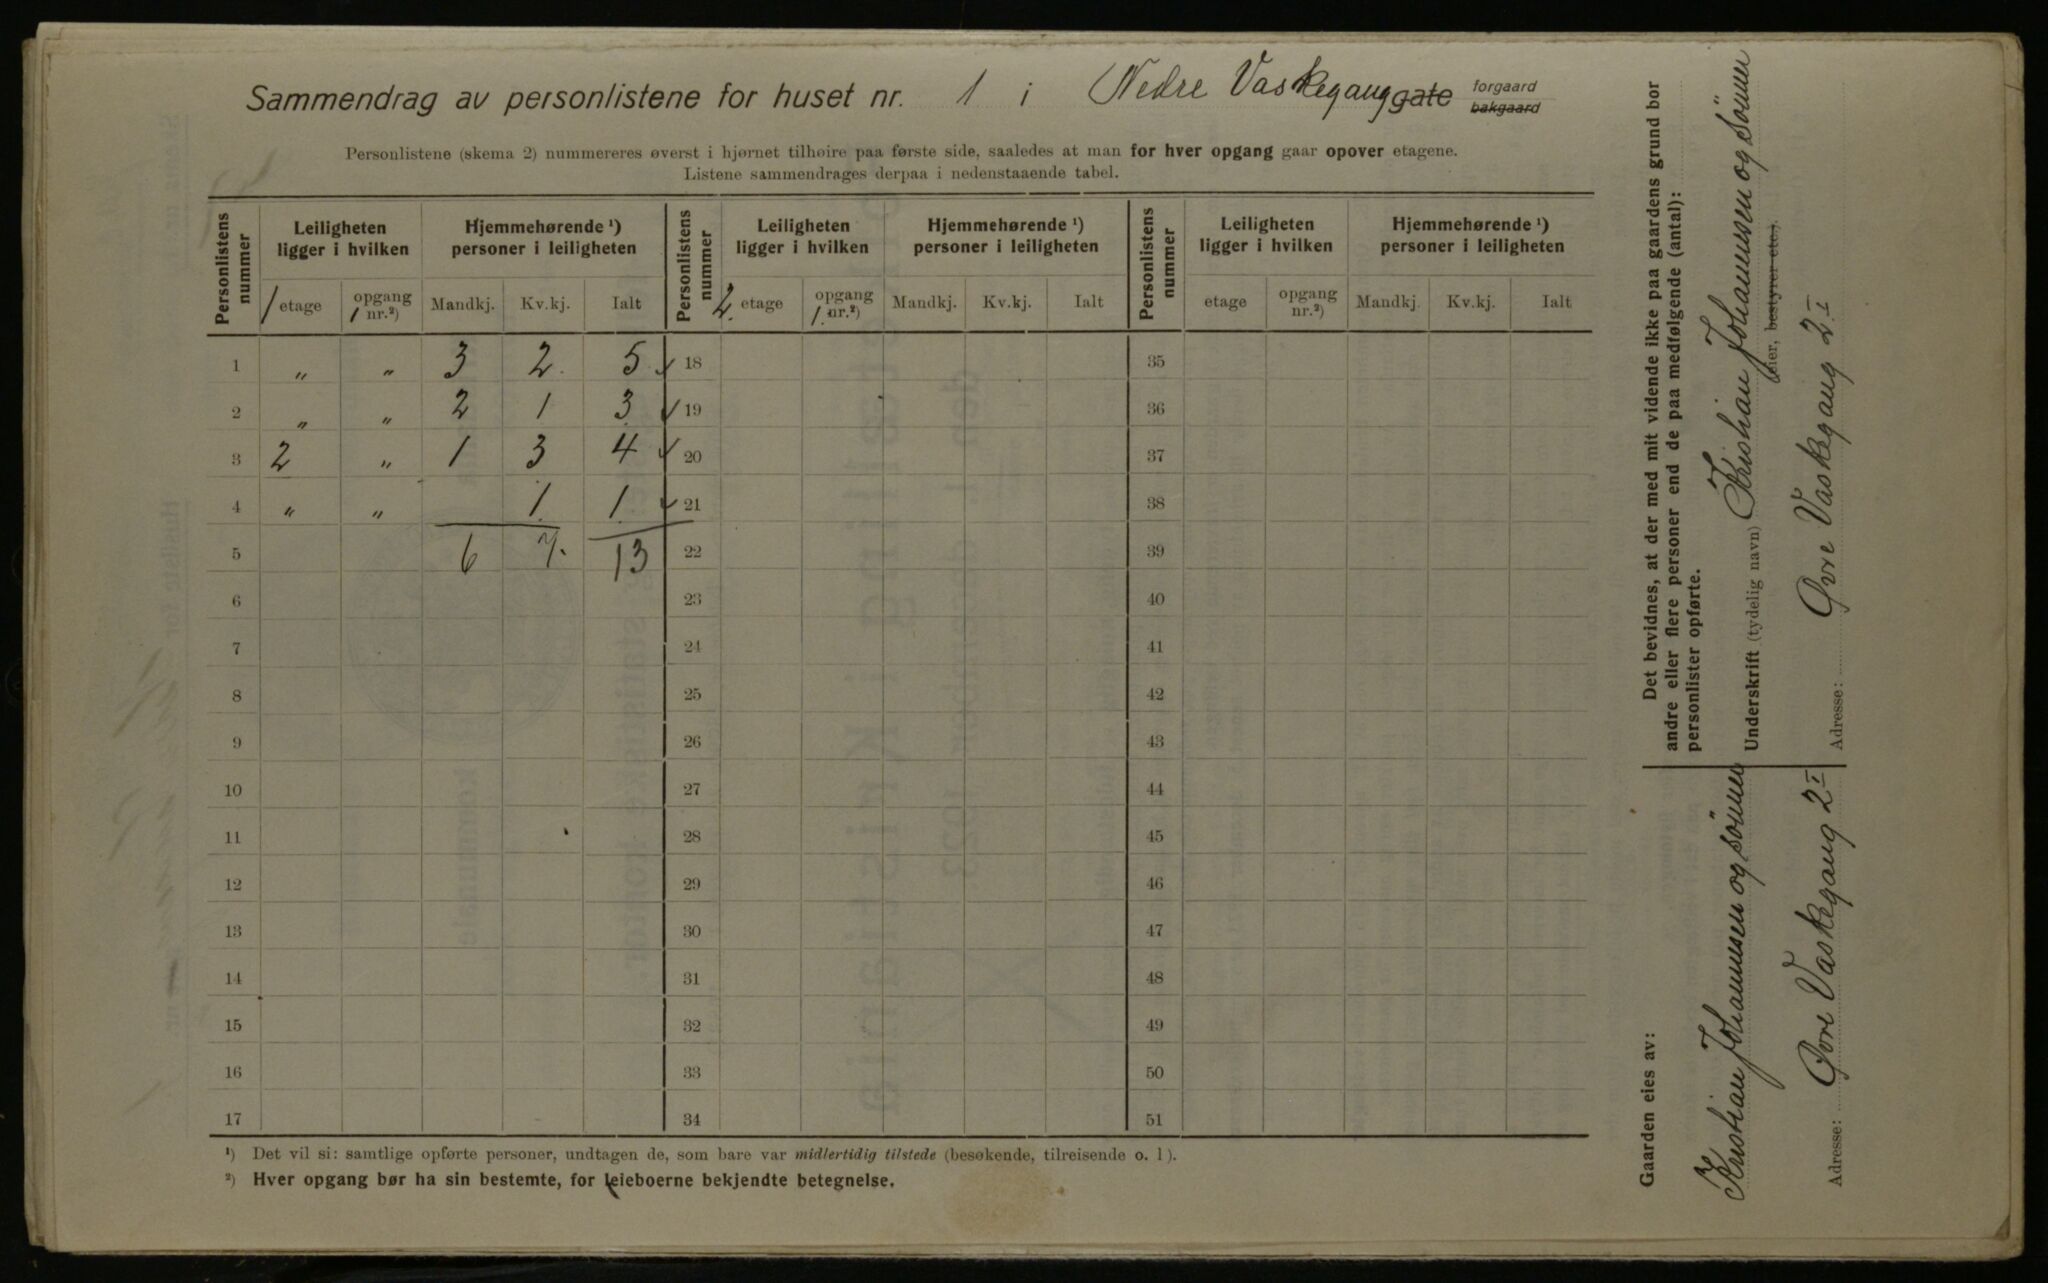 Sammendrag av personlistene for huset nr. 1 i Nedre Vaskegang gate forgaard bakgaard
Personlistene (skema 2) nummereres øverst i hjørnet tilhøire paa første side, saaledes at man for hver opgang gaar opover etagene.
Listene sammendrages derpaa i nedenstaaende tabel.
Personlistens nummer Leiligheten ligger i hvilken Hjemmehørende ¹) personer i leiligheten Personlistens nummer Leiligheten ligger i hvilken Hjemmehørende ¹) personer i leiligheten Personlistens nummer Leiligheten ligger i hvilken Hjemmehørende ¹) personer i leiligheten
1 etage opgang 1 nr.²) Mandkj. Kv.kj. Ialt 2. etage opgang 1. nr.²) Mandkj. Kv.kj. Ialt etage opgang nr.²) Mandkj. Kv.kj. Ialt
1 " " 3 2. 5 ✓ 18 35
2 " " 2 1 3 ✓ 19 36
3 2 " 1 3 4 ✓ 20 37
4 " " 1. 1. ✓ 21 38
5 6 7. 13 22 39
6 23 40
7 24 41
8 25 42
9 26 43
10 27 44
11 28 45
12 29 46
13 30 47
14 31 48
15 32 49
16 33 50
17 34 51
¹) Det vil si: samtlige opførte personer, undtagen de, som bare var midlertidig tilstede (besøkende, tilreisende o. l).
²) Hver opgang bør ha sin bestemte, for leieboerne bekjendte betegnelse.
Det bevidnes, at der med mit vidende ikke paa gaardens grund bor
andre eller flere personer end de paa medfølgende (antal):
personlister opførte.
Underskrift (tydelig navn) Kristian Johannsen og sönner
eier, bestyrer etc.).
Adresse: Øvre Vaskegang 2 I
Gaarden eies av:
Kristian Johannsen og sönner
Adresse: Øvre Vaskegang 2 I